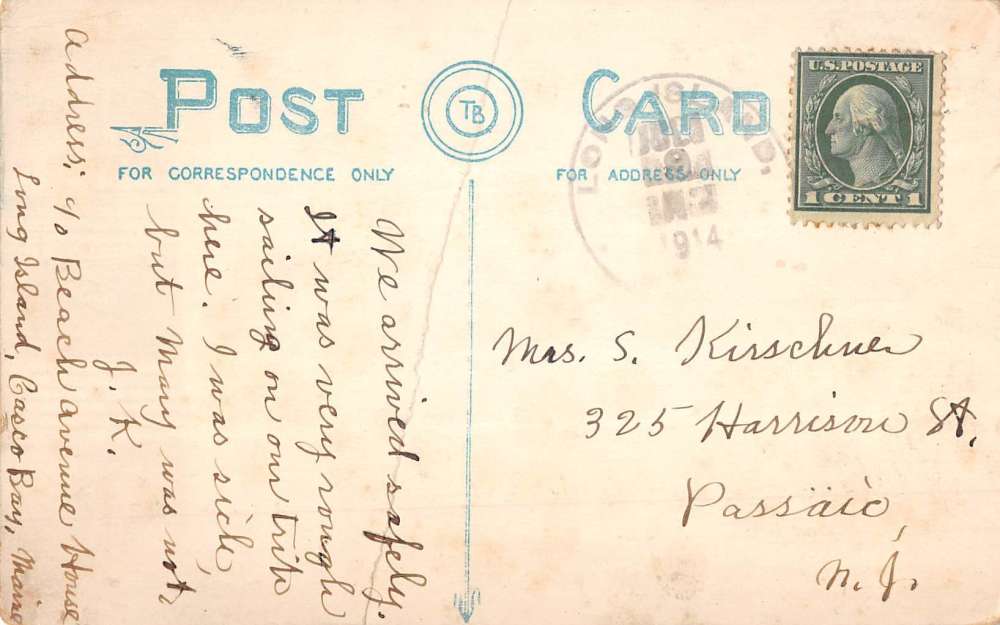 POST CARD
TB
FOR CORRESPONDENCE ONLY
FOR ADDRESS ONLY
U.S. POSTAGE
1 CENT 1
LONG ISLAND,
9
1914
We arrived safely.
It was very rough
sailing on our trip
here. I was sick,
but Mary was not.
J. K.
Address: c/o Beach Avenue House
Long Island, Casco Bay, Maine
Mrs. S. Kirschner
325 Harrison St.
Passaic,
N. J.